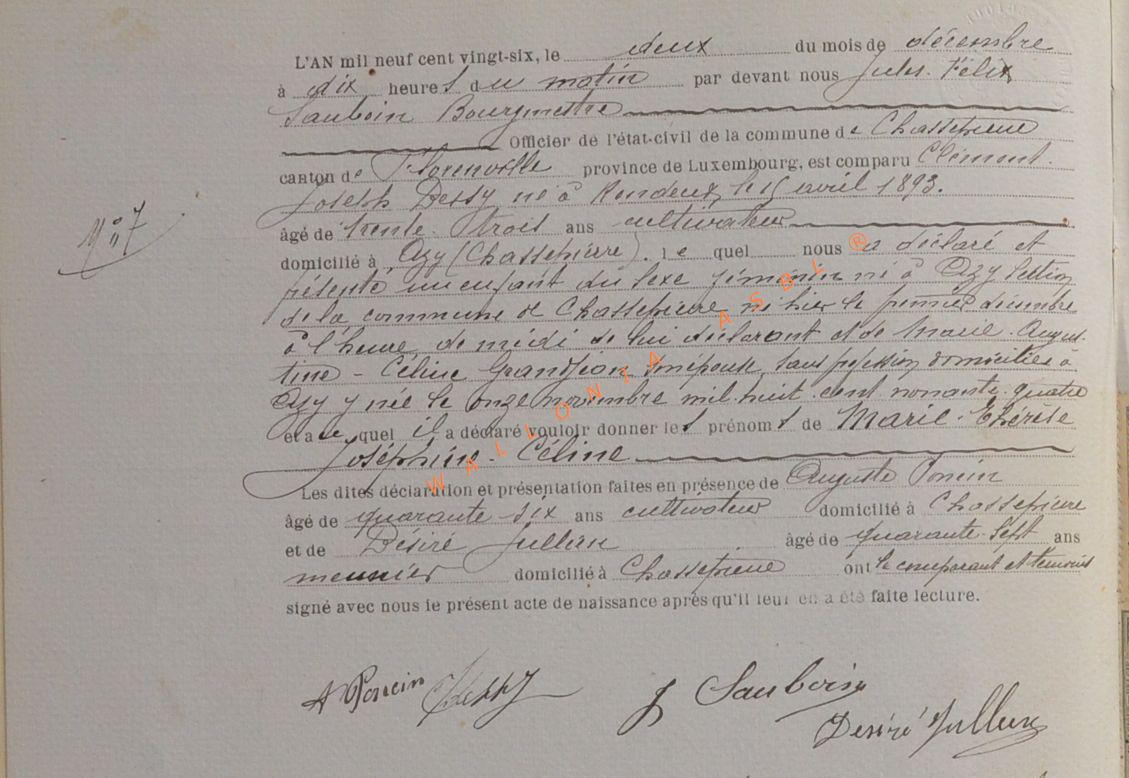 L'AN mil neuf cent vingt-six, le deux du mois de décembre
à dix heures du matin par devant nous Jules Félix
Sauboin Bourgmestre
Officier de l'état-civil de la commune de Chassepierre
canton de Florenville province de Luxembourg, est comparu Clément
Joseph Dessy né à Rendeux le avril 1893.
N° 7
âgé de trente trois ans cultivateur
domicilié à Azy (Chassepierre). lequel nous a déclaré et
présenté un enfant du sexe féminin né à Azy section
de la commune de Chassepierre né hier le premier décembre
à l'heure de midi de lui déclarant et de Marie-Augus-
tine-Céline Grandjean son épouse, sans profession domiciliée à
Azy y née le onze novembre mil huit cent nonante quatre
et auquel il a déclaré vouloir donner les prénoms de Marie-Thérèse
Joséphine-Céline
Les dites déclaration et présentation faites en présence de Auguste Poncin
âgé de quarante-six ans cultivateur domicilié à Chassepierre
et de Désiré Jullien âgé de quarante-sept ans
meunier domicilié à Chassepierre ont le comparant et témoins
signé avec nous le présent acte de naissance après qu'il leur en a été faite lecture.
A Poncin Dessy J Sauboin
Désiré Jullien
WALLONIA ASBL ®